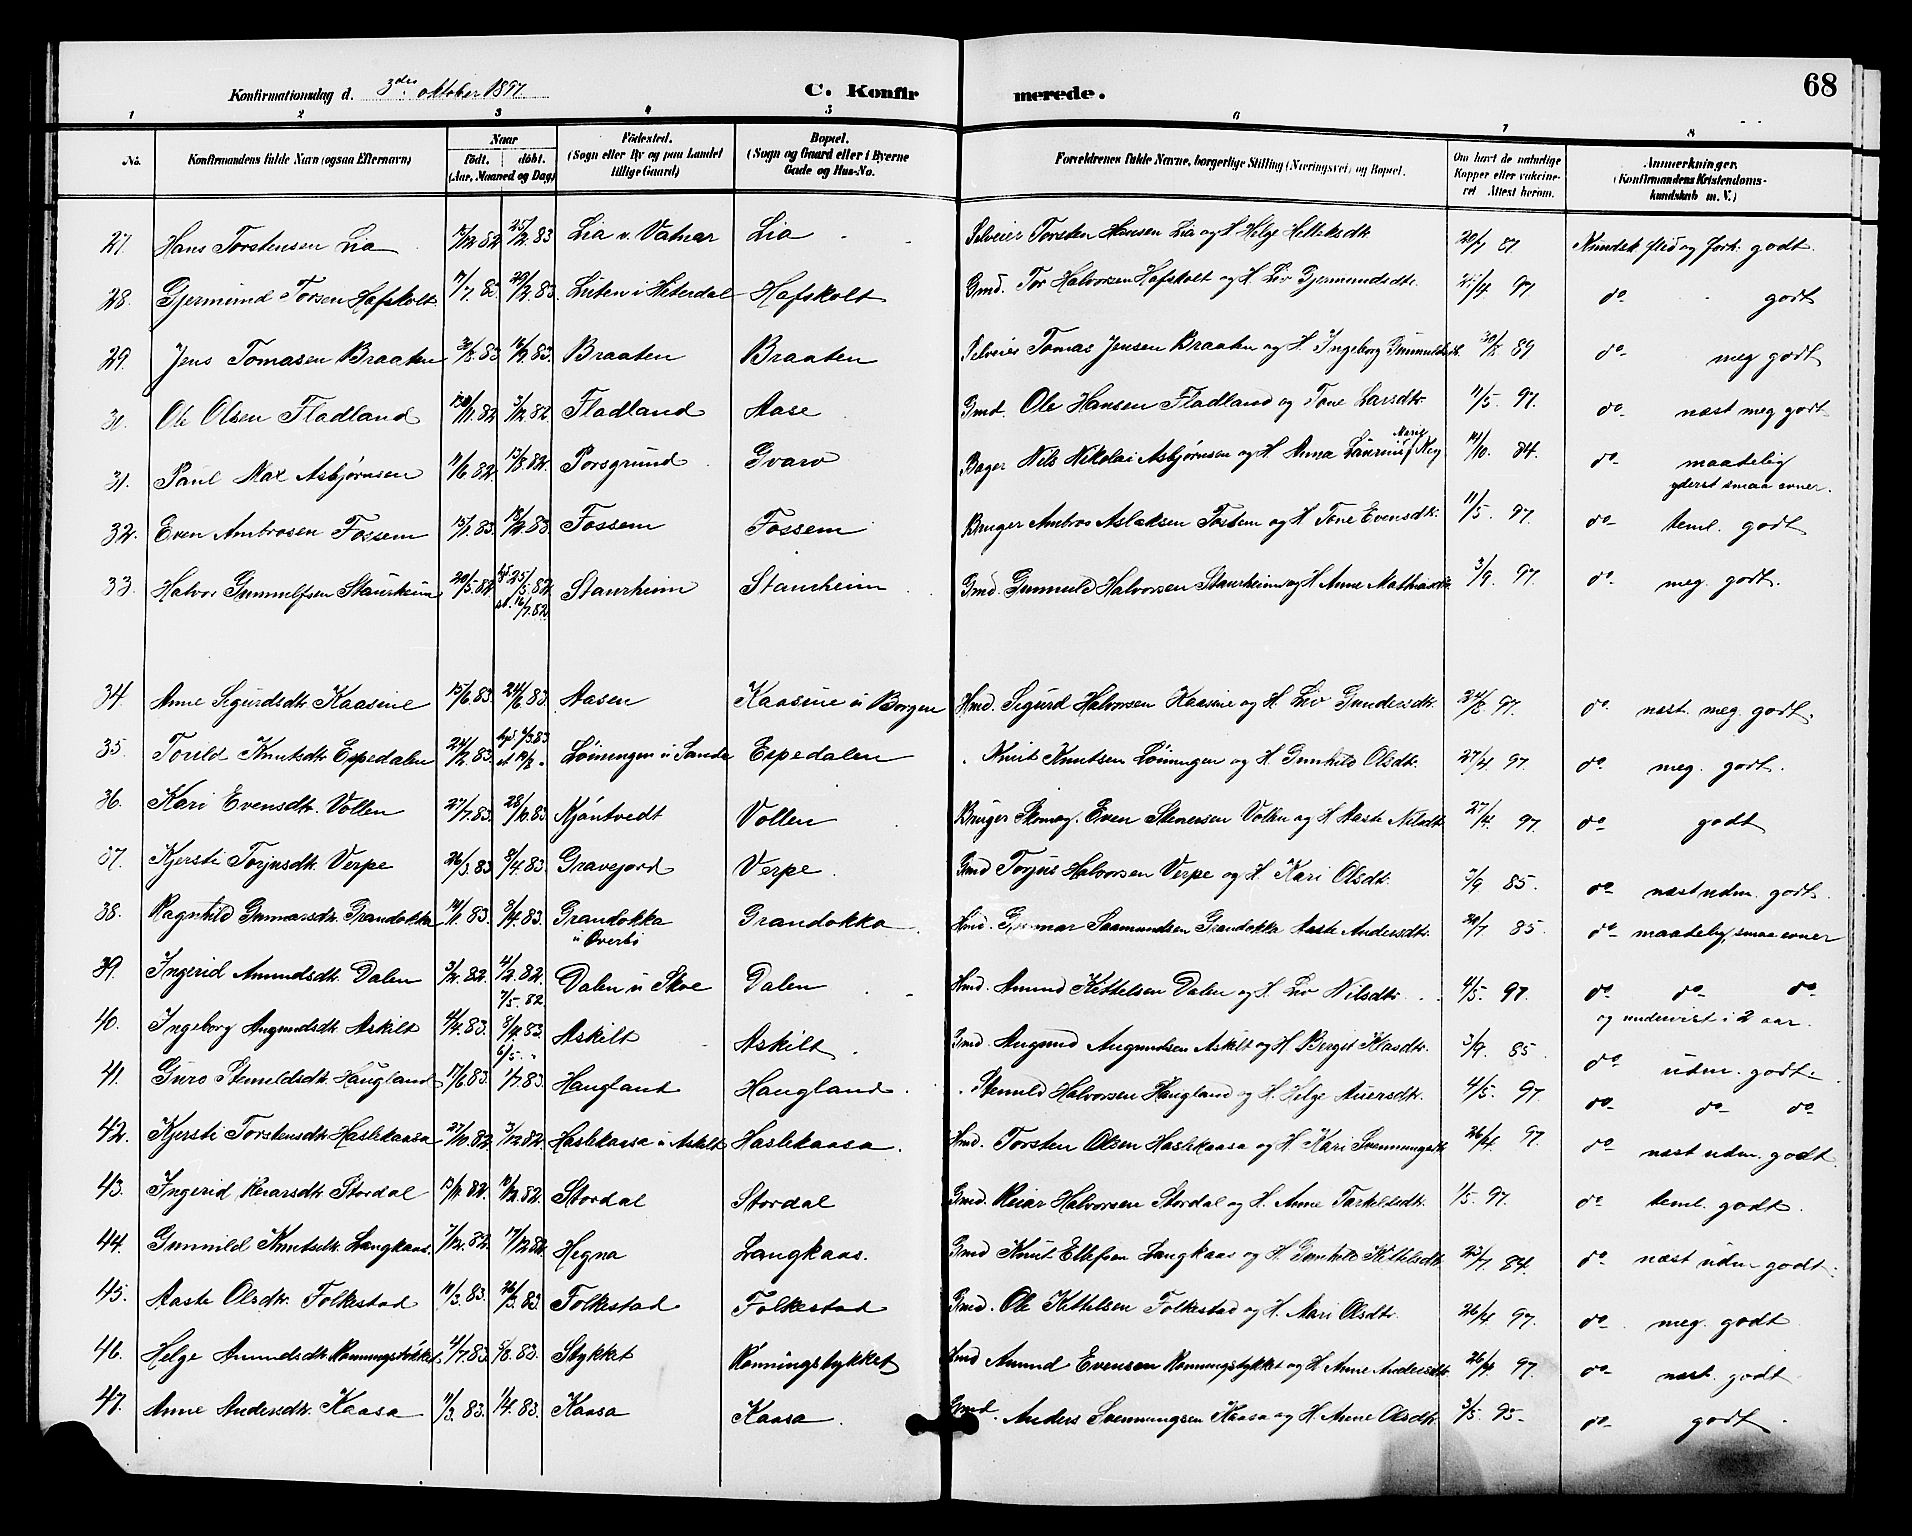 68
Konfirmationsdag d. 3die oktober 1897.
C. Konfirmerede.
1 2 3 4 5 6 7 8
No. Konfirmandens fulde Navn (ogsaa Efternavn) Naar født. døbt. (Aar, Maaned og Dag) Fødested. (Sogn eller By og paa Landet tillige Gaard) Bopæl. (Sogn og Gaard eller i Byerne Gade og Hus-No. Forældrenes fulde Navne, borgerlige Stilling (Næringsvei) og Bopæl. Om havt de naturlige Kopper eller vakcineret Attest herom. Anmærkninger. (Konfirmandens Kristendomskundskab m. V.)
27. Hans Torstensen Lia 82 25/2.83 Lia v. Vatnar Lia Selveier Torsten Hansen Lia og H. Helge 20/7 87 flid og forh. godt
28. Gjermund Torsen Hafskolt 7/7.82 29/2.83 i Heterdal Hafskolt Gmd. Tor Halvorsen Hafskolt og H. Liv Gjermundsdtr. 97. do godt
29. Jens Tomasen Braaten 83 83 Braaten Braaten Selveier Tomas Jensen Braaten og H. Ingeborg 89 do meg godt
30. Ole Olsen Fladland 82 3/12.82 Fladland Aase Gmd. Ole Hansen Fladland og Tone Larsdtr. 11/5. 97. do næst meg godt
31. Paul Max Asbjørnsen 11/6.82 13/8.82 Porsgrund Gvarv Bager Nils Nikolai Asbjørnsen og H. Anna Marie 14/10. 84. do maadelig yderst smaa evner.
32. Even Ambrosen Fossem 15/1.83. 18/2.83 Fossem Fossem Bruger Ambros Aslaksen og H. Tone Evensdtr. 11/5. 97. do teml. godt
33. Halvor Gunnulfsen Staurheim 20/5.82 25/5.82 16/7.82 Staurheim Staurheim Gmd. Halvorsen Staurheim og H. Anne 3/9. 97. do meg. godt.
34. Anne Sigurdsdtr. Kaasine 15/6.83. 24/6.83. Aasen Kaasine u Borgen Hmd. Sigurd Halvorsen Kaasine og H. Liv Gundersdtr. 97. do næst. meg. godt.
35. Torild Knutsdtr. Espedalen 83. 83 Løiningen u Sanda Espedalen Knut Knutsen Løiningen og H. Gunhild Olsdtr. 27/4. 97. do meg. godt.
36. Kari Evensdtr. Vollen 27/7.83. 83 Kjøntvedt Vollen Bruger Skomag. Even Stenersen Vollen og H. Aaste Nilsdtr. 27/4. 97. do godt
37. Kjersti Torjusdtr. Verpe 26/3.83 8/4.83. Gravejord Verpe Gmd Torjus Halvorsen Verpe og H. Kari Olsdtr. 3/9 85. do næst udm. godt.
38. Ragnhild Gunnarsdtr. Grandokka 83. 8/4.83. Grandokka u Overbø Grandokka Hmd. Gunnar Saamundsen Grandokka Aaste Andersdtr. 20/7 85. do maadelig, smaa evner
39. Ingerid Amundsdtr. Dalen 82. 4/2.82. 7/5.82 Dalen u Skoe Dalen Hmd. Amund Kittelsen Dalen og H. Liv Nilsdtr. 4/5. 97. do do do og undervist i 2 aar.
40. Ingeborg Augundsdtr. Askilt 4/4.83. 8/4.83. 6/5. " Askilt Askilt Gmd. Augund Augundsen Askilt og H. Birgit 3/9. 85. do udm. godt.
41. Guro Stenuldsdtr. Haugland 17/6.83. 1/7.83. Haugland Haugland Stenuld Halvorsen Haugland og H. Helge 4/5. 97. do do do
42. Kjersti Torstensdtr. Haslekaasa 27/10.82. 3/12.82. Haslekaasa u Askilt Haslekaasa. Hmd. Torsten Olsen Haslekaasa og H. Kari Svenningsdtr. 26/4. 97. do næst udm. godt.
43. Ingerid Reiarsdtr. Stordal 82. 82. Stordal Stordal Gmd. Reiar Halvorsen Stordal og H. Anne Tarkelsdtr. 1/5. 97. do teml. godt.
44. Gunnild Knutsdtr. Langkaas. 7/12.82. 17/12.82 Hegna Langkaas. Gmd Knut Ellefsen Langkaas og H. Gunhild Kittelsdtr. 23/7 84. do næst udm godt.
45. Aaste Olsdtr. Folkestad 11/3.83. 26/3.83. Folkestad Folkestad Gmd. Ole Kittelsen Folkestad og H. Mari Olsdtr. 26/4 97. do meg. godt
46. Helge Amundsdtr. Rønningstykket 4/7.83. 5/8.83. Stykket Rønningstykket Hmd Amund Evensen Rønningstykket og H. Anne Andersdtr. 26/4 97. do næst. godt
47. Anne Andersdtr. Kaasa 11/3.83. 1/4.83. Kaasa Kaasa. Gmd. Anders Svenningsen Kaasa og H. Anne Olsdtr. 3/5. 95. do godt